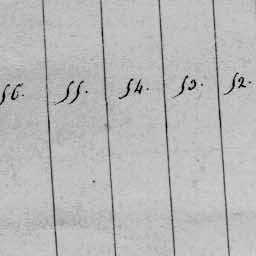 56. 55. 54. 53. 52.